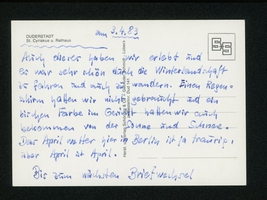 DUDERSTADT
St. Cyriakus u. Rathaus
am 3.4.83
Auch dieses haben wir erlebt und
es war sehr schön durch die Winterlandschaft
zu fahren und auch zu wandern. Einen Regen-
schirm hatten wir nicht gebraucht und ein
bischen Farbe im Gesicht haben wir auch
bekommen von der Sonne und Schnee.
Das April wetter hier in Berlin ist ja traurig,
aber April ist April.
Bis zum nächsten Briefwechsel